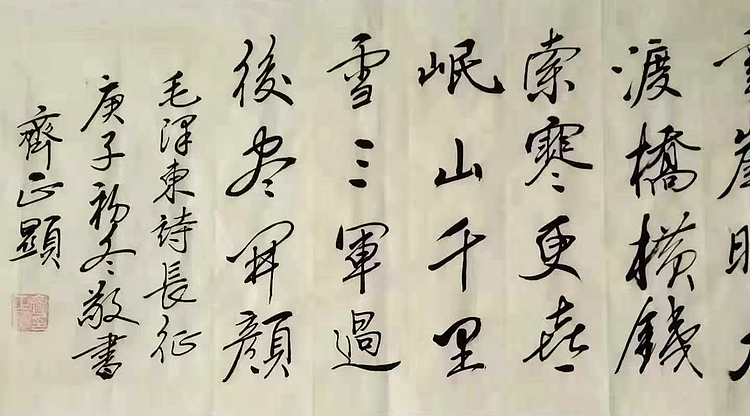 渡橋横鐵
索寒更喜
岷山千里
雪三軍過
後尽開顔
毛泽東詩長征
庚子初冬敬書
齊正顯